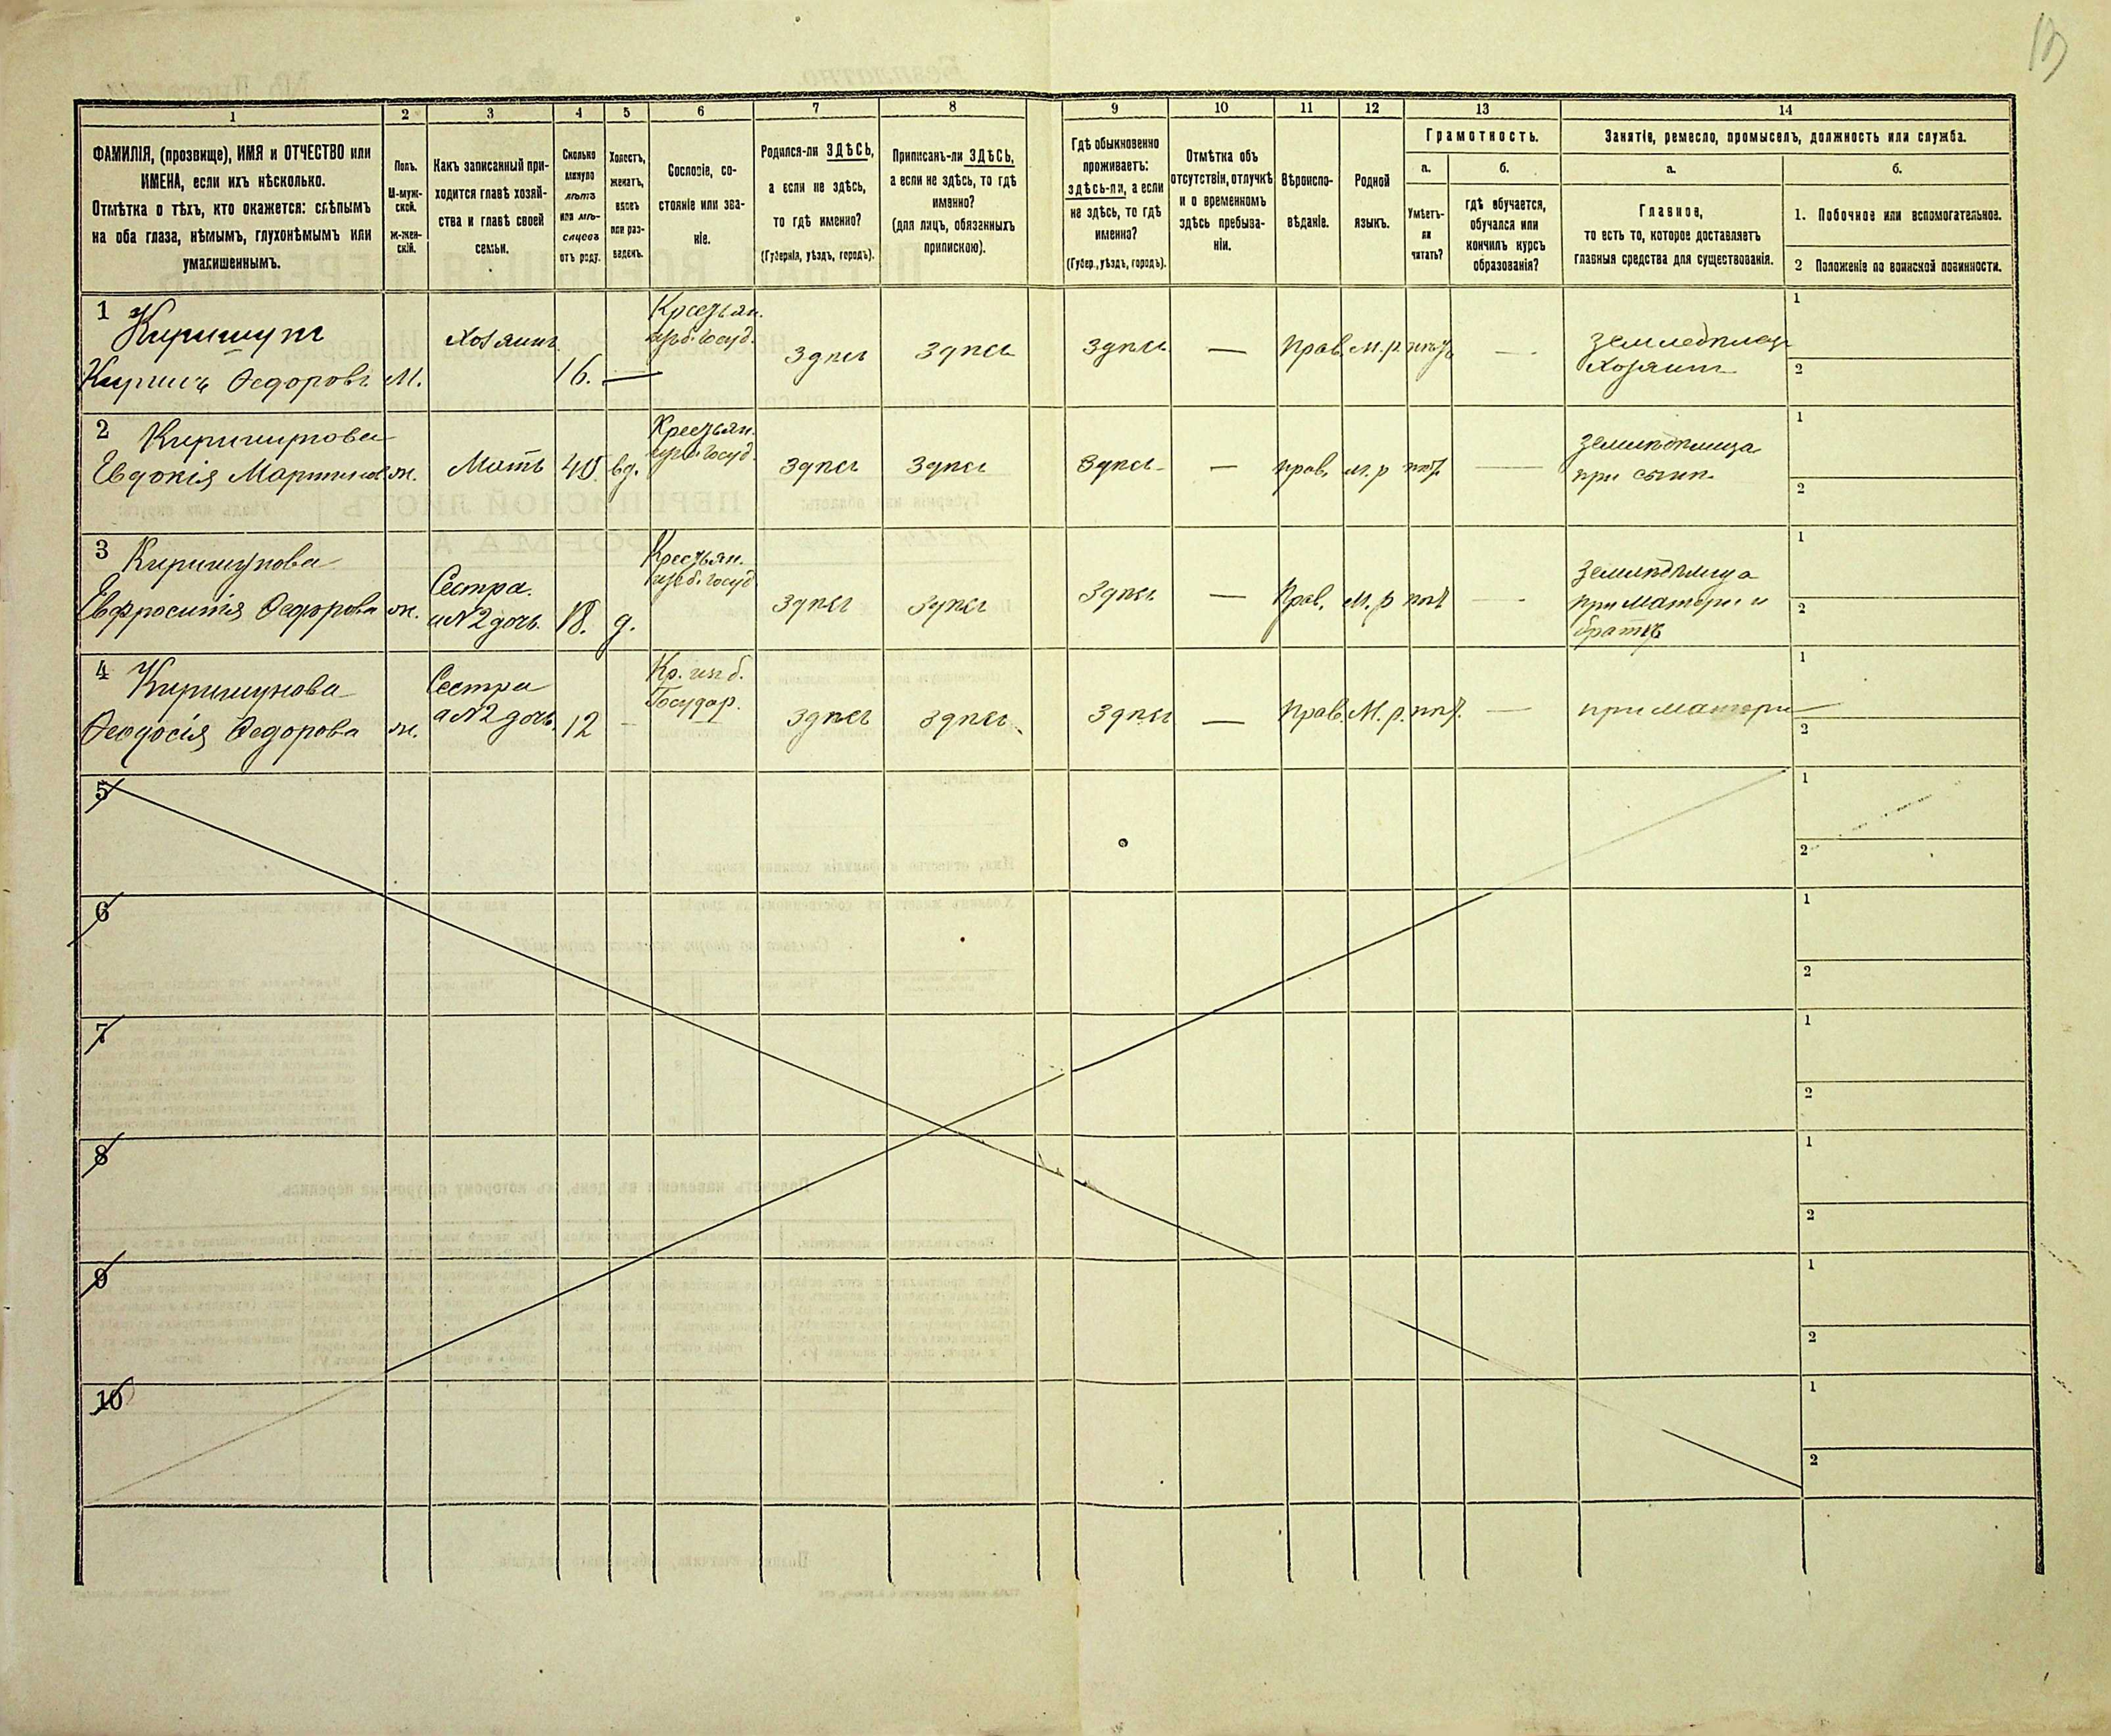 13
1
2
3
4
5
6
7
8
9
10
11
12
13
14
ФАМИЛІЯ, (прозвище), ИМЯ и ОТЧЕСТВО или
ИМЕНА, если ихъ нѣсколько.
Отмѣтка о тѣхъ, кто окажется: слѣпымъ
на оба глаза, нѣмымъ, глухонѣмымъ или
умалишеннымъ.
Полъ.
М-муж-
ской.
Ж-жен-
скій.
Какъ записанный при-
ходится главѣ хозяй-
ства и главѣ своей
семьи.
Сколько
минуло
лѣтъ
или мѣ-
сяцевъ
отъ роду.
Холостъ,
женатъ,
вдовъ
или раз-
веденъ.
Сословіе, со-
стояніе или зва-
ніе.
Родился-ли ЗДѢСЬ,
а если не здѣсь,
то гдѣ именно?
(Губернія, уѣздъ, городъ).
Приписанъ-ли ЗДѢСЬ,
а если не здѣсь, то гдѣ
именно?
(для лицъ, обязанныхъ
припискою).
Гдѣ обыкновенно
проживаетъ:
здѣсь-ли, а если
не здѣсь, то гдѣ
именно?
(Губер., уѣздъ, городъ).
Отмѣтка объ
отсутствіи, отлучкѣ
и о временномъ
здѣсь пребыва-
ніи.
Вѣроиспо-
вѣданіе.
Родной
языкъ.
Грамотность.
а.
б.
Умѣетъ-
ли
читать?
гдѣ обучается,
обучался или
кончилъ курсъ
образованія?
Занятіе, ремесло, промыселъ, должность или служба.
а.
б.
Главное,
то есть то, которое доставляетъ
главныя средства для существованія.
1. Побочное или вспомогательное.
2 Положеніе по воинской повинности.
1
Кирилъ Ѳедоровъ М.
Хозяинъ
16. —
Крестьян.
изъ б. госуд.
здѣсь здѣсь здѣсь — Прав. М.р.
Хозяинъ
1
2
2
Евдокія ж. Мать 40 вд.
Крестьян.
здѣсь здѣсь здѣсь — прав. м.р
при сынѣ.
1
2
3 Киришунова
Евфросинія Ѳедорова ж.
Сестра.
а №2 дочь. 18. д.
Крестьян.
из б. госуд
здѣсь здѣсь здѣсь — Прав. М.р —
при матери и
братѣ
1
2
4 Киришунова
Ѳеодосія Ѳедорова ж.
Сестра
а №2 дочь. 12 —
Кр. из б.
Государ.
здѣсь здѣсь здѣсь — Прав. М.р. —
при матери
1
2
5
1
2
6
1
2
7
1
2
8
1
2
9
1
2
10
1
2